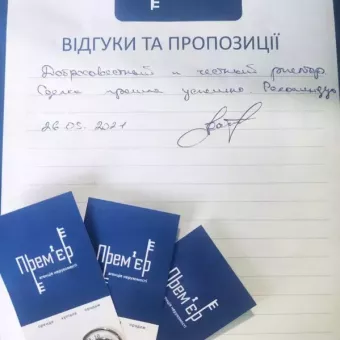 ВІДГУКИ ТА ПРОПОЗИЦІЇ
Добросовестный и честный риелтор
Сделка прошла успешно Рекомендую
26 05. 2021
Прем'єр
агенція нерухомості
оренда купівля продаж
Прем'єр
агенція нерухомості
продаж
Прем'єр
агенція нерухомості